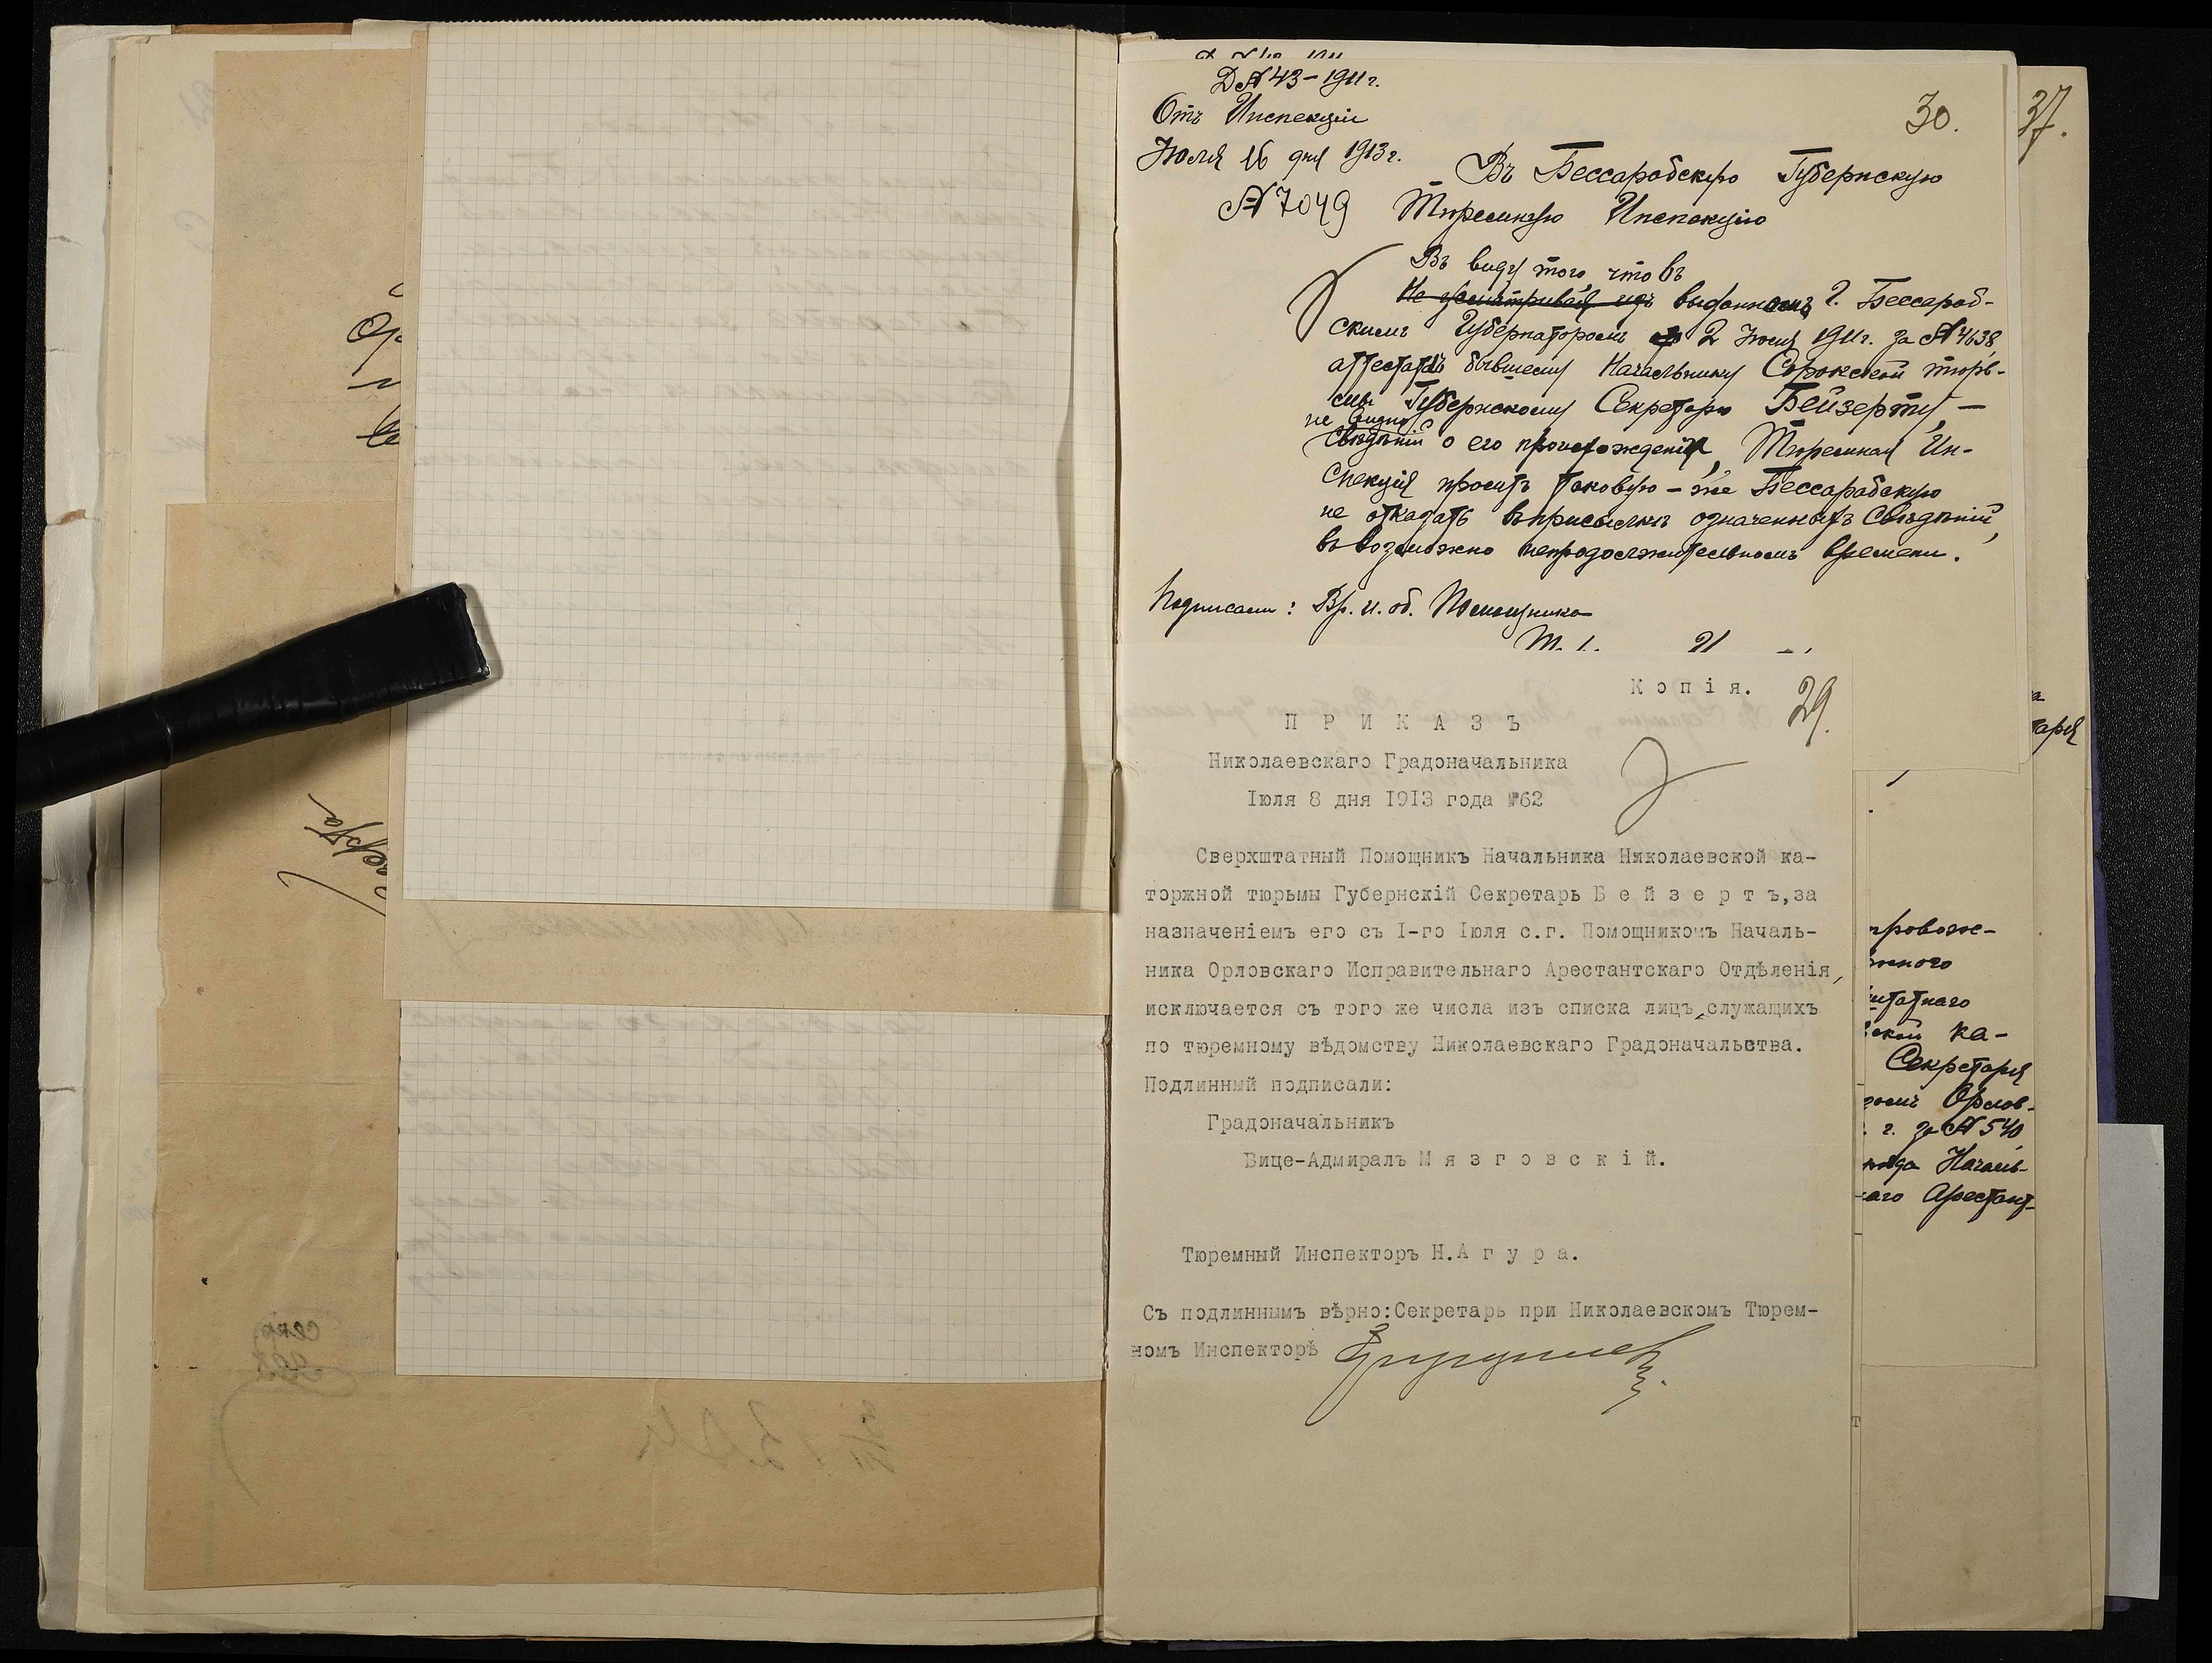 Д № 43 – 1911 г.
Отъ Инспекціи
Іюля 16 дня 1913 г.
№ 7049
30.
37.
Въ Бессарабскую Губернскую
Тюремную Инспекцію
Въ виду того, что въ
выданномъ Г. Бессараб-
скимъ Губернаторомъ 2 Іюня 1911 г. за № 4638,
аттестатѣ бывшему Начальнику Сорокской тюрь-
мы Губернскому Секретарю Бейзерту, —
не видно
свѣдѣній о его происхожденіи, Тюремная Ин-
спекція проситъ таковую-же Бессарабскую
не отказать въ присылкѣ означенныхъ свѣдѣній,
въ возможно непродолжительномъ времени.
Подписали: Вр. и. об. Помощника
Копія.
29.
ПРИКАЗЪ
Николаевскаго Градоначальника
Іюля 8 дня 1913 года №62
Сверхштатный Помощникъ Начальника Николаевской ка-
торжной тюрьмы Губернскій Секретарь Бейзертъ, за
назначеніемъ его съ I-го Іюля с.г. Помощникомъ Началь-
ника Орловскаго Исправительнаго Арестантскаго Отдѣленія,
исключается съ того же числа изъ списка лицъ, служащихъ
по тюремному вѣдомству Николаевскаго Градоначальства.
Подлинный подписали:
Градоначальникъ
Вице-Адмиралъ Мязговскій.
Тюремный Инспекторъ Н.Агура.
Съ подлиннымъ вѣрно:Секретарь при Николаевскомъ Тюрем-
номъ Инспекторѣ
таря
провож-
штатнаго
ской ка-
Секретаря
ромъ Орлов-
г. за № 540
Началь-
наго Арестант-